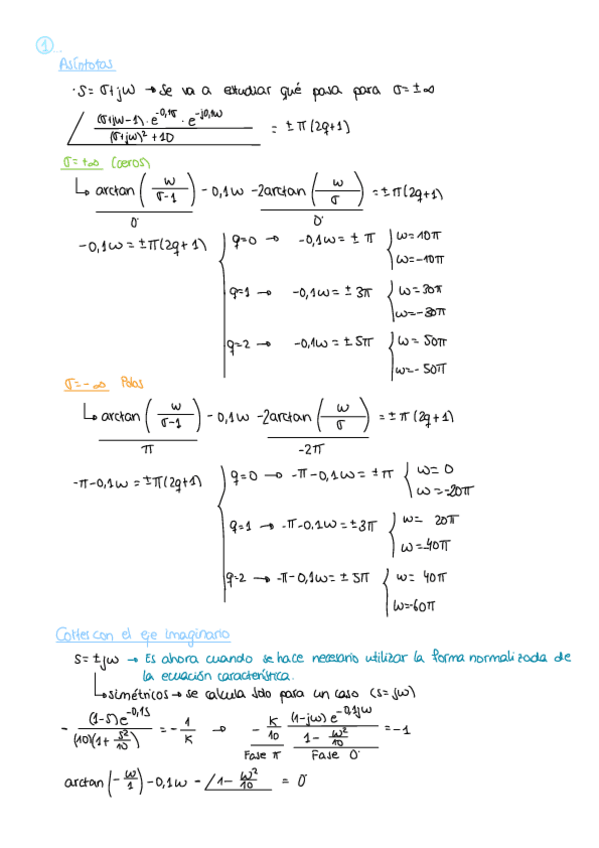 1
Asíntotas
· s = σ+jω → Se va a estudiar qué pasa para σ = ±∞
∠ (σ+jω-1)·e^-0,1σ · e^-j0,1ω / (σ+jω)² + 10 = ±π(2q+1)
σ = +∞ (ceros)
↳ arctan( ω / σ-1 ) - 0,1ω - 2arctan( ω / σ ) = ±π(2q+1)
0· 0·
-0,1ω = ±π(2q+1) q=0 → -0,1ω = ± π ω = 10π
ω = -10π
q=1 → -0,1ω = ± 3π ω = 30π
ω = -30π
q=2 → -0,1ω = ± 5π ω = 50π
ω = -50π
σ = -∞ Polos
↳ arctan( ω / σ-1 ) - 0,1ω - 2arctan( ω / σ ) = ±π(2q+1)
π -2π
-π-0,1ω = ±π(2q+1) q=0 → -π-0,1ω = ±π ω = 0
ω = -20π
q=1 → -π-0,1ω = ±3π ω = 20π
ω = -40π
q=2 → -π-0,1ω = ± 5π ω = 40π
ω = -60π
Cortes con el eje imaginario
s = ±jω → Es ahora cuando se hace necesario utilizar la forma normalizada de
la ecuación característica.
↳ simétricos → se calcula solo para un caso (s=jω)
- (1-s)e^-0,1s / (10)(1+ s²/10) = - 1/K → - K/10 (1-jω)e^-0,1jω / 1- ω²/10 = -1
Fase π Fase 0·
arctan(- ω/1) - 0,1ω - ∠1- ω²/10 = 0·